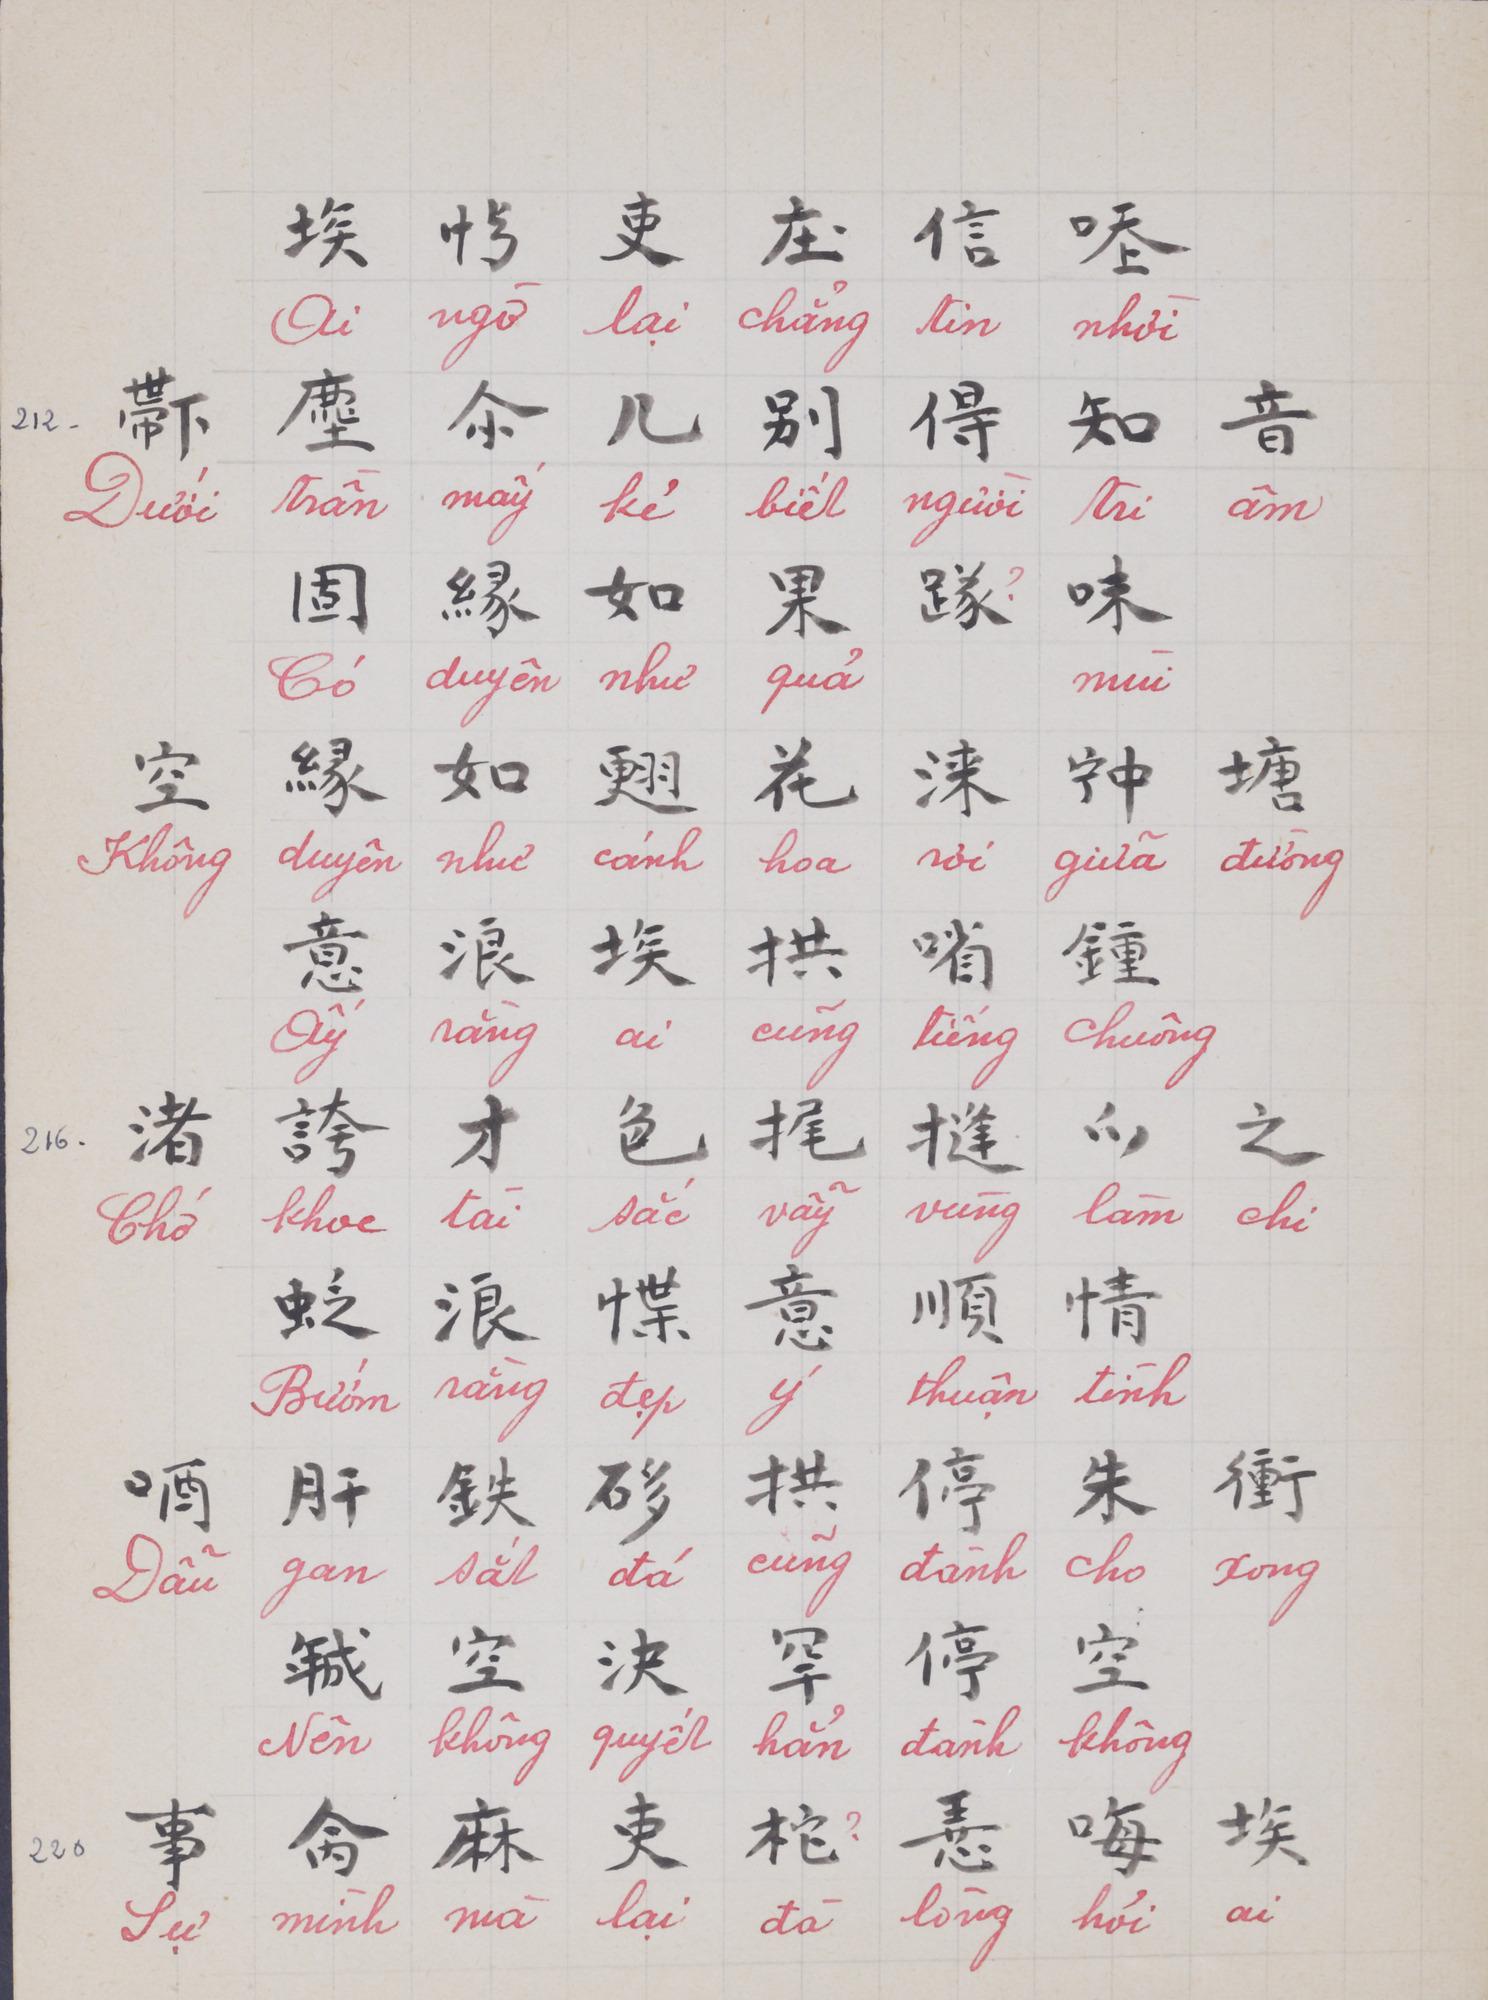 埃 𢗔 吏 庄 信 𠳒
Ai ngờ lại chẳng tin nhời
212. 𠁑 塵 尒 几 別 得 知 音
Dưới trần mấy kẻ biết người tri âm
固 緣 如 果 𨅎? 味
Có duyên như quả mùi
空 緣 如 翅 花 淶 𡨌 塘
Không duyên như cánh hoa rơi giữa đường
意 浪 埃 拱 㗂 鍾
Ấy rằng ai cũng tiếng chuông
216. 渚 誇 才 色 捤 摓 𪜀 之
Chớ khoe tài sắc vẫy vùng làm chi
𧉙 浪 惵 意 順 情
Bướm rằng đẹp ý thuận tình
唒 肝 鉄 𥒥 拱 停 朱 衝
Dẫu gan sắt đá cũng đành cho xong
𢧚 空 決 罕 停 空
Nên không quyết hẳn đành không
220 事 𠇮 麻 吏 柁? 𢚸 𠳨 埃
Sự mình mà lại đà lòng hỏi ai